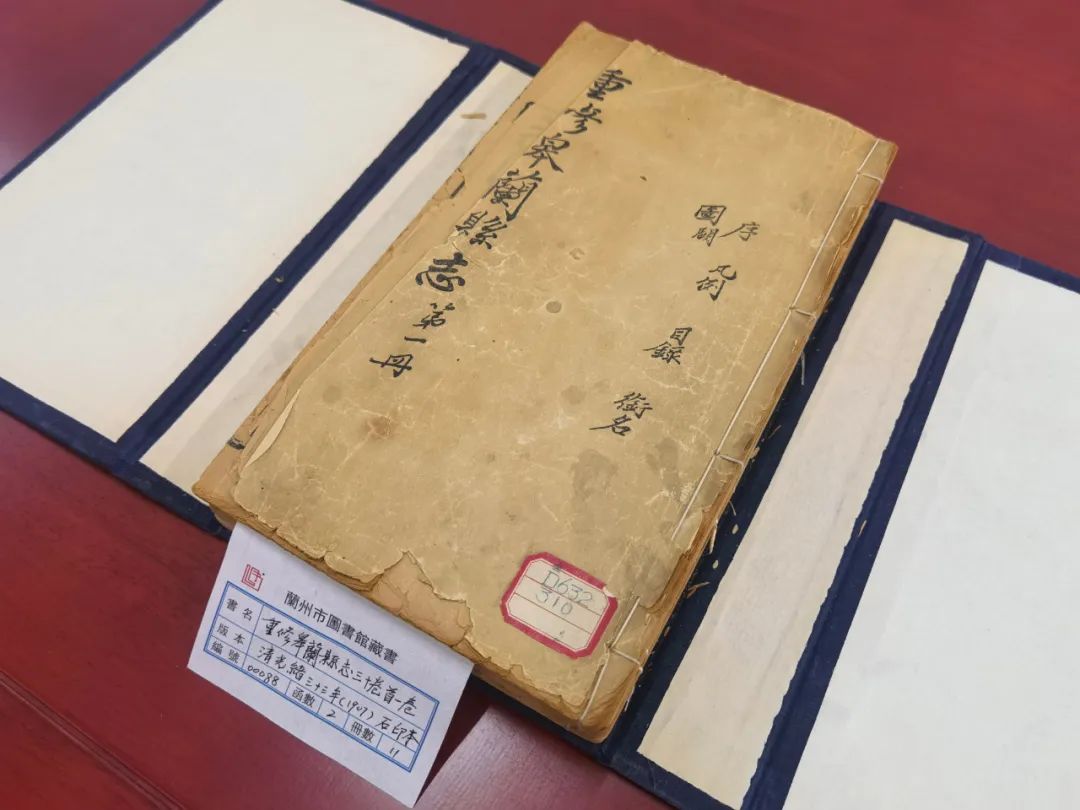 重修皋蘭縣志第一冊
序
圖
凡例
目錄
銜名
D632
310
蘭州市圖書館藏書
書名 重修皋蘭縣志三十卷首一卷
版本 清光緒三十三年(1907)石印本
編號 00088 函數 2 冊數 11